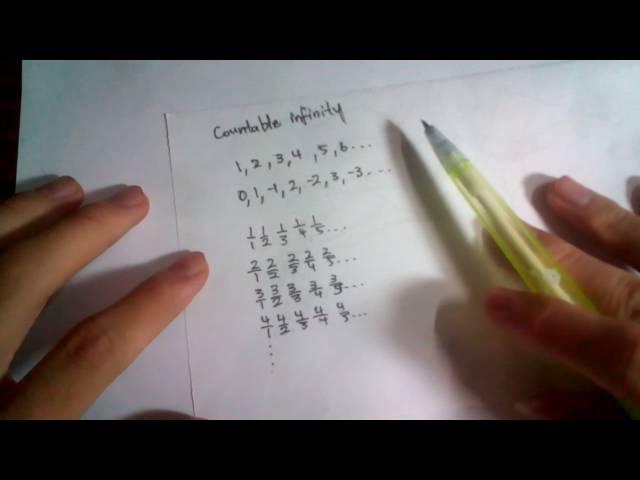 Countable infinity
1, 2, 3, 4, 5, 6...
0, 1, -1, 2, -2, 3, -3...
1/1 1/2 1/3 1/4 1/5...
2/1 2/2 2/3 2/4 2/5...
3/1 3/2 3/3 3/4 3/5...
4/1 4/2 4/3 4/4 4/5...
⋮